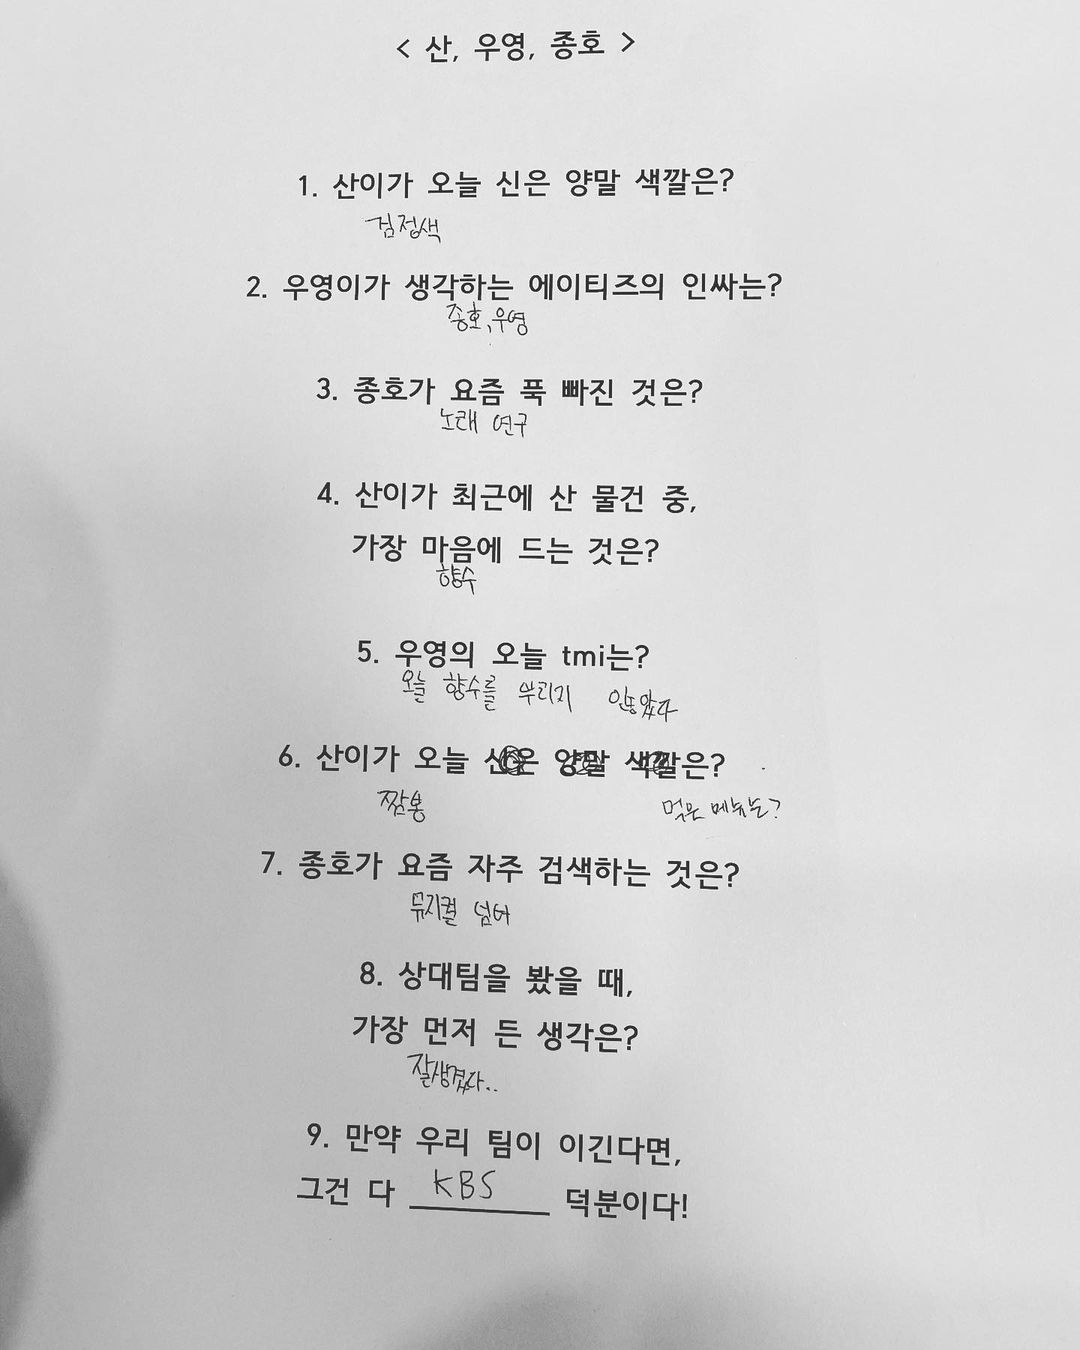 < 산, 우영, 종호 >
1. 산이가 오늘 신은 양말 색깔은?
검정색
2. 우영이가 생각하는 에이티즈의 인싸는?
종호, 우영
3. 종호가 요즘 푹 빠진 것은?
노래 연구
4. 산이가 최근에 산 물건 중,
가장 마음에 드는 것은?
향수
5. 우영의 오늘 tmi는?
오늘 향수를 뿌리지 안놓았다
6. 산이가 오늘 신은 양말 색깔은?
짬뽕 먹은 메뉴는?
7. 종호가 요즘 자주 검색하는 것은?
뮤지컬 넘버
8. 상대팀을 봤을 때,
가장 먼저 든 생각은?
잘생겼다..
9. 만약 우리 팀이 이긴다면,
그건 다 KBS 덕분이다!